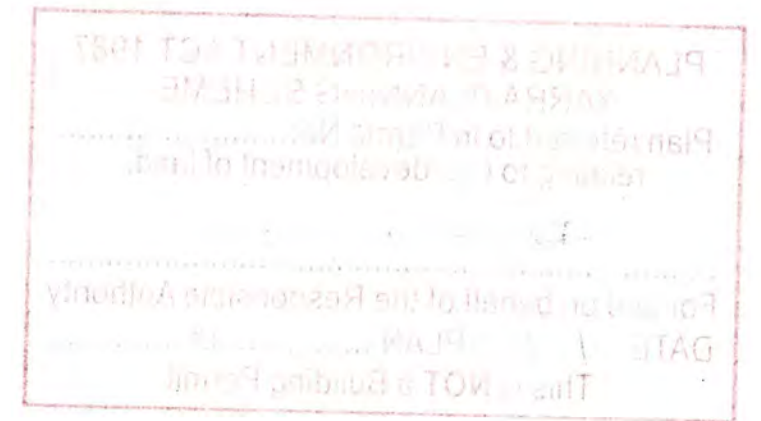 PLANNING & ENVIRONMENT ACT 1987
YARRA PLANNING SCHEME
Plan referred to in Permit No.....................
relating to development of land.
For and on behalf of the Responsible Authority
DATE / / PLAN
This is NOT a Building Permit